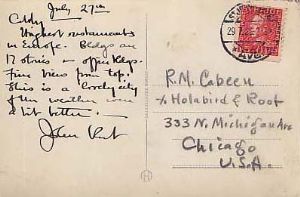 July 27th
Highest restaurants
in Europe. Bldgs are
17 stories - office Bldgs.
Fine views from top.
This is a lovely city
if the weather were
a bit better.
John
R.M. Cabeen
% Holabird & Root
333 N. Michigan Ave
Chicago
U.S.A.